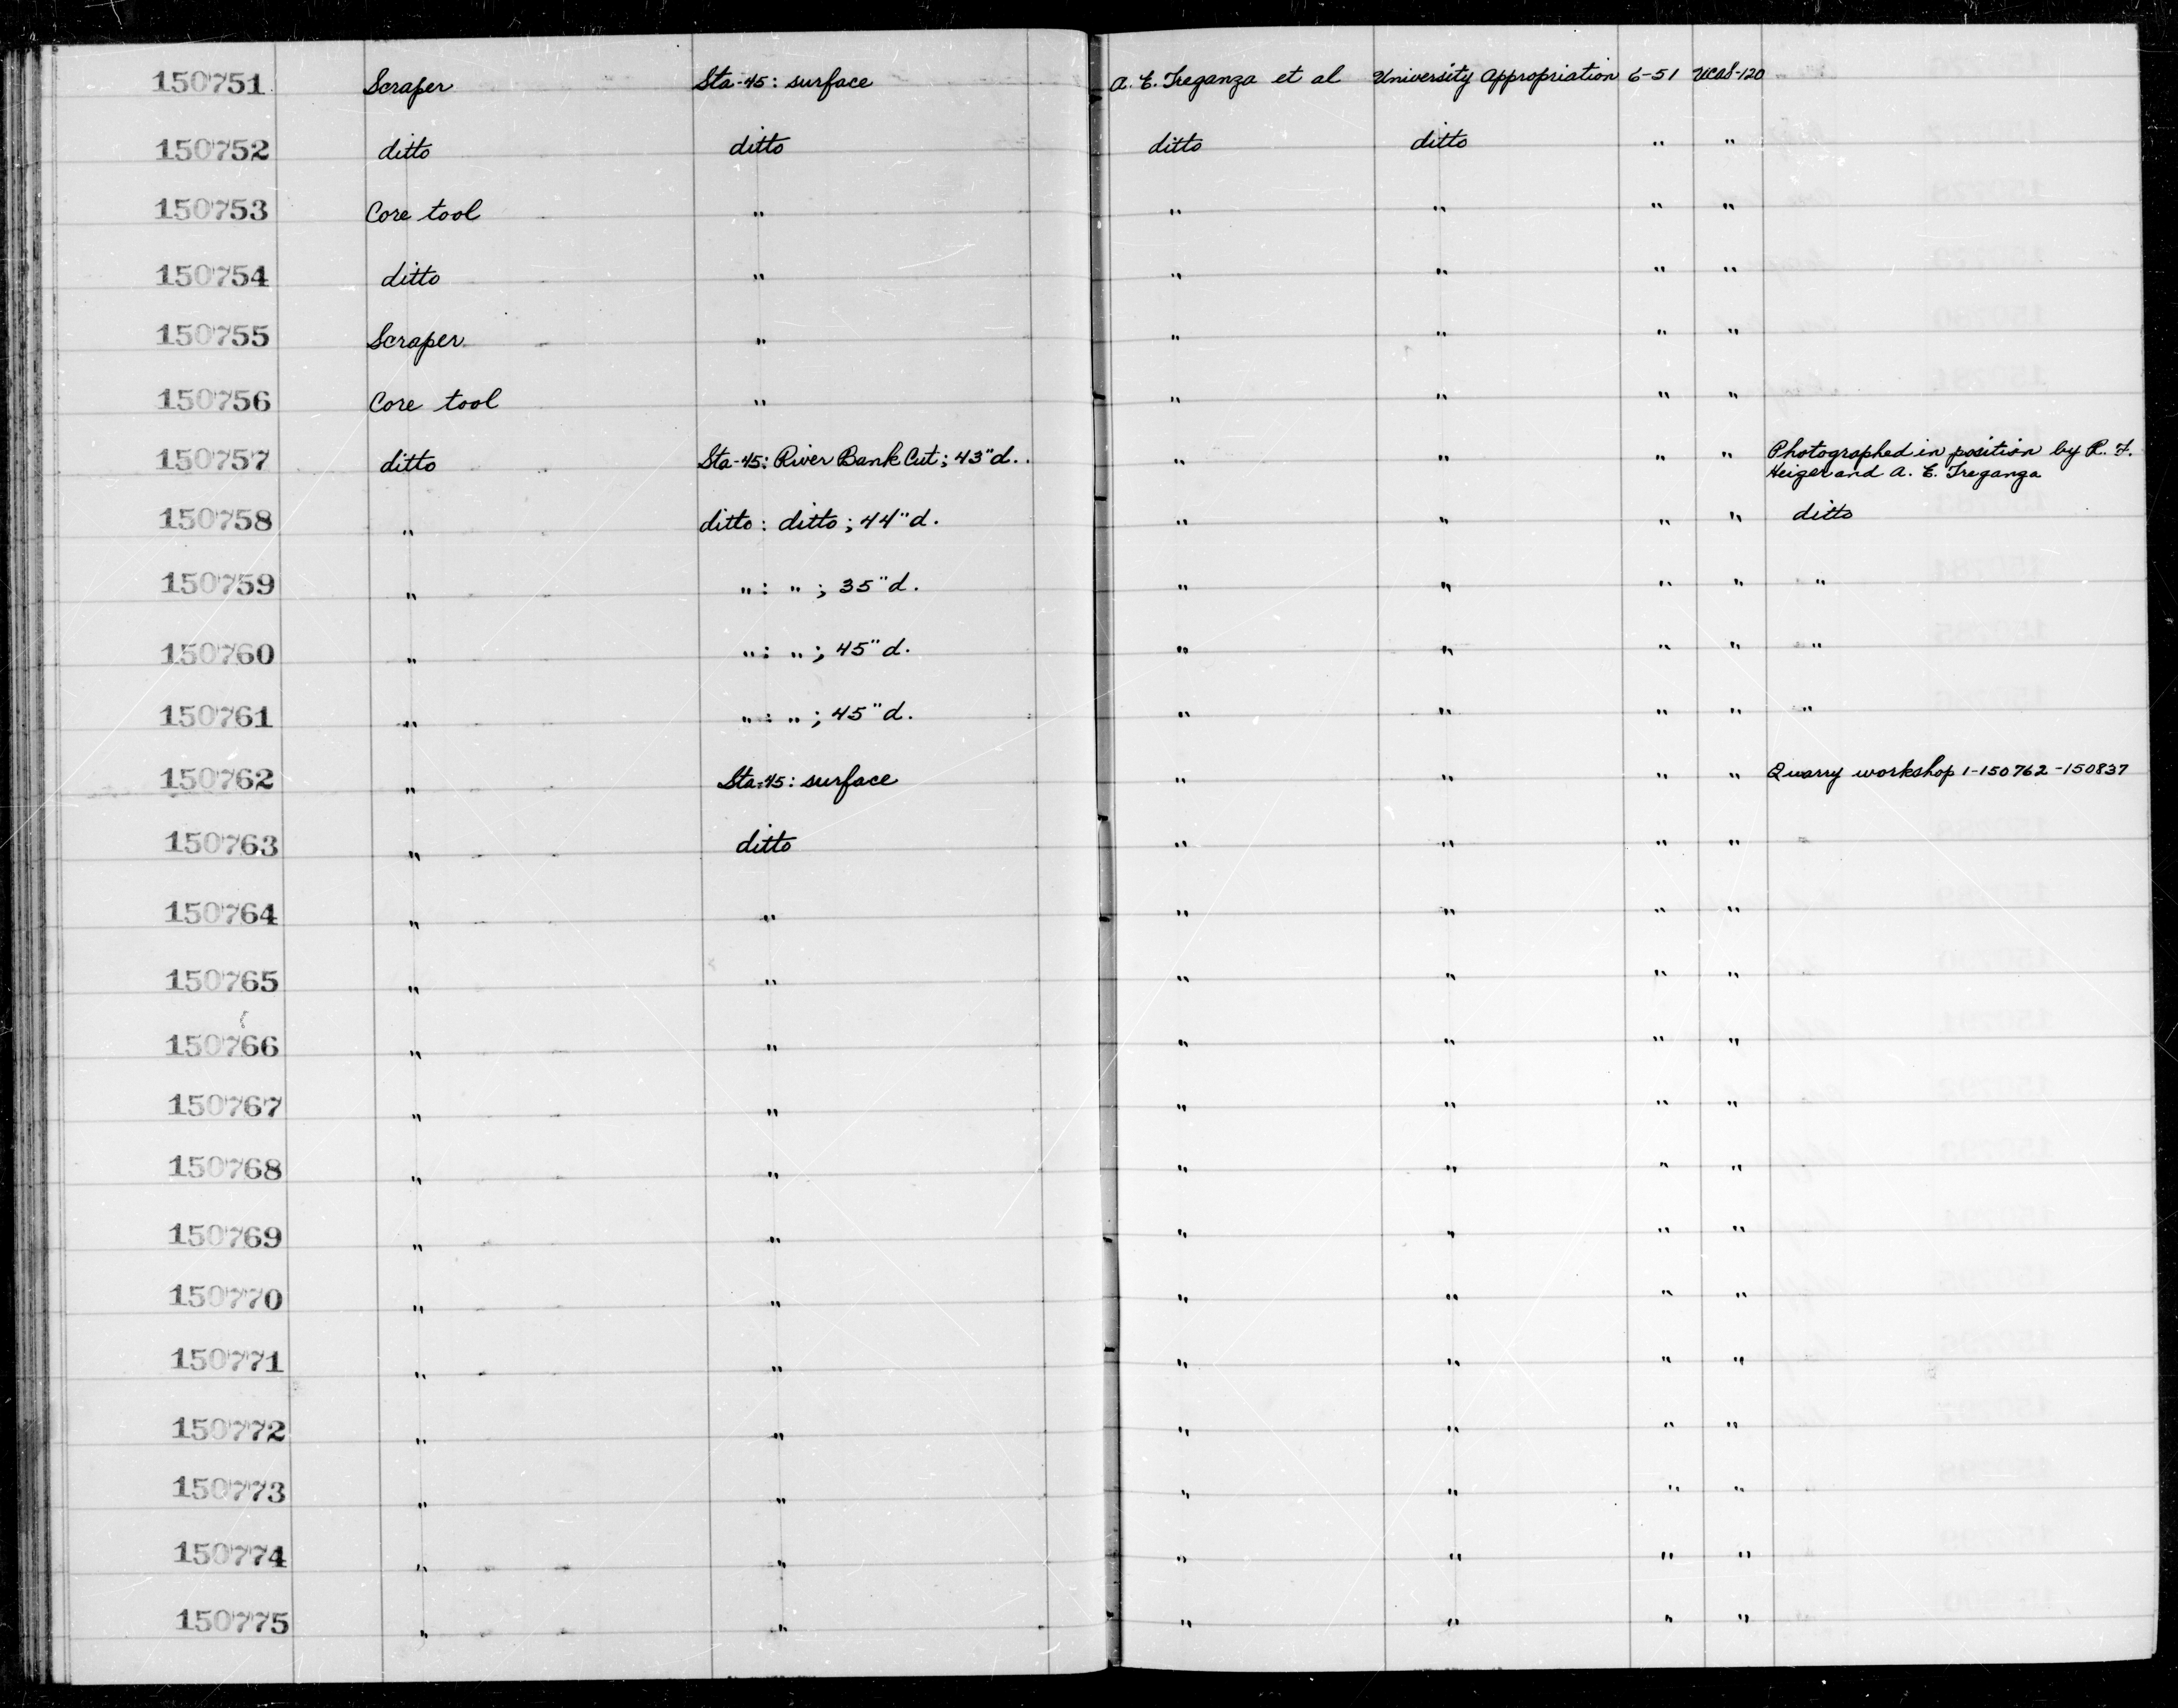 150751 Scraper Sta-45: surface A. E. Treganza et al University Appropriation 6-51 UCAS-120
150752 ditto ditto ditto ditto " "
150753 Core tool " " " " "
150754 ditto " " " " "
150755 Scraper " " " " "
150756 Core tool " " " " "
150757 ditto Sta-45: River Bank Cut; 43"d. " " " " Photographed in position by R. F.
Heizer and A. E. Treganza
150758 " ditto: ditto; 44"d. " " " " ditto
150759 " ": "; 35"d. " " " " "
150760 " ": "; 45"d. " " " " "
150761 " ": "; 45"d. " " " " "
150762 " Sta-45: surface " " " " Quarry workshop 1-150762-150837
150763 " ditto " " " "
150764 " " " " " "
150765 " " " " " "
150766 " " " " " "
150767 " " " " " "
150768 " " " " " "
150769 " " " " " "
150770 " " " " " "
150771 " " " " " "
150772 " " " " " "
150773 " " " " " "
150774 " " " " " "
150775 " " " " " "